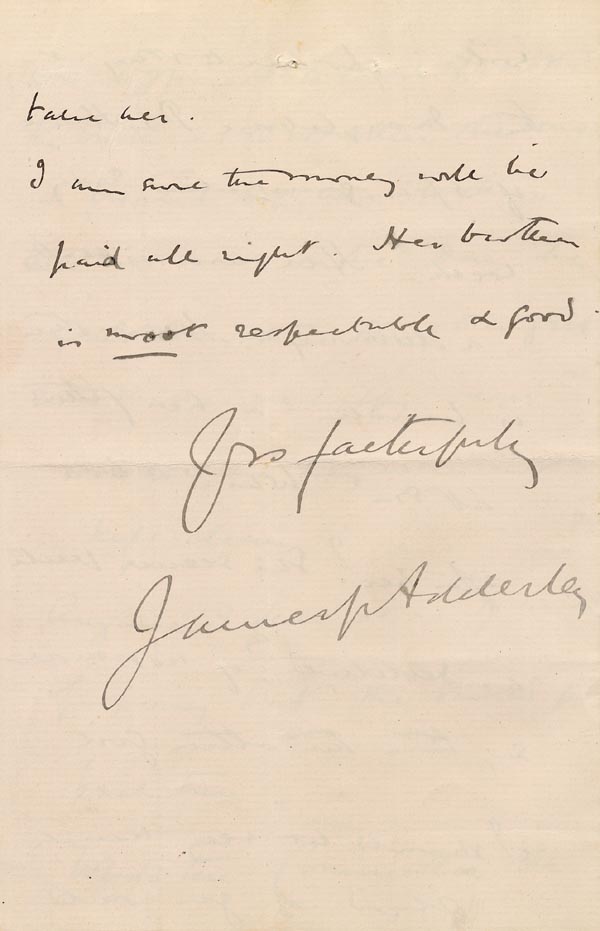 take her.
I am sure the money will be
paid all right. Her brother
is most respectable & good.
Yrs faithfully
James Adderley